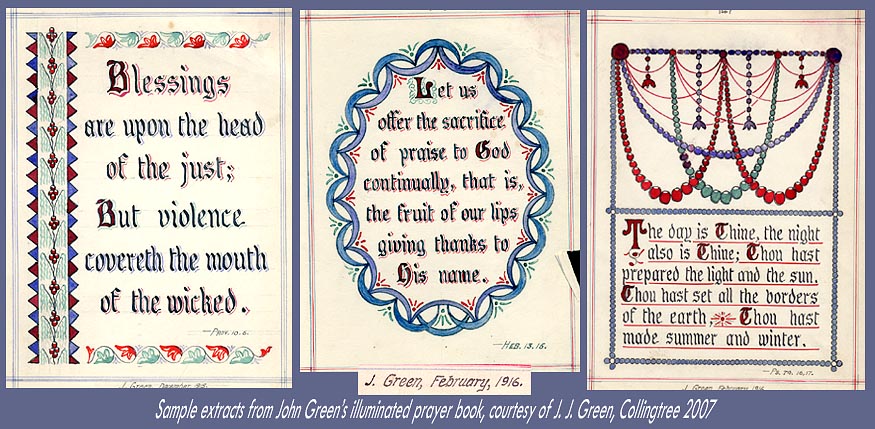 Blessings
are upon the head
of the just;
But violence
covereth the mouth
of the wicked.
—Prov. 10. 6.
J. Green, December 1915.
Let us
offer the sacrifice
of praise to God
continually, that is,
the fruit of our lips
giving thanks to
His name.
—HEB. 13. 15.
J. Green, February, 1916.
The day is Thine, the night
also is Thine; Thou hast
prepared the light and the sun.
Thou hast set all the borders
of the earth; Thou hast
made summer and winter.
—Ps. 74. 16, 17.
J. Green February 1916
Sample extracts from John Green's illuminated prayer book, courtesy of J. J. Green, Collingtree 2007